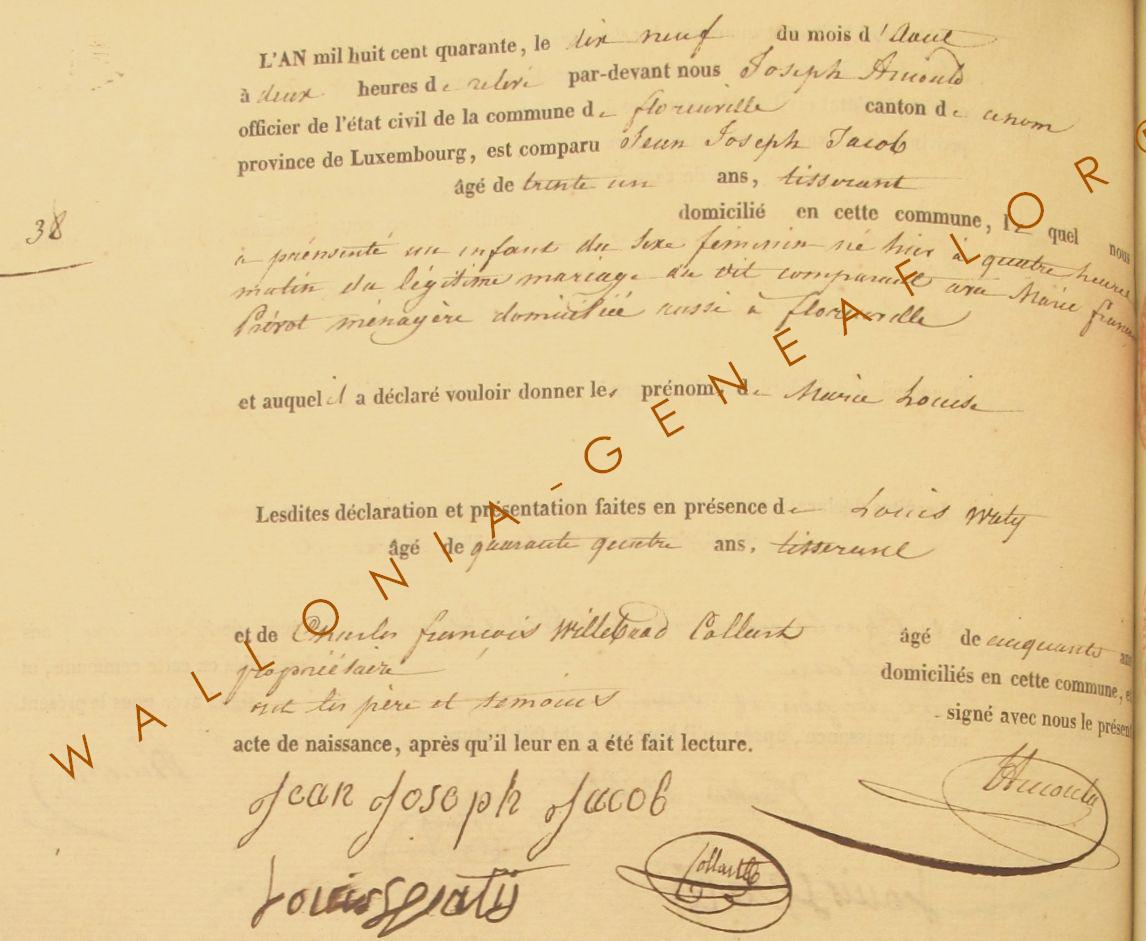 L'AN mil huit cent quarante, le dix neuf du mois d'Aout
à deux heures de relevé par-devant nous Joseph Arnould
officier de l'état civil de la commune de florenville canton de idem
province de Luxembourg, est comparu Jean Joseph Jacob
âgé de trente un ans, tisserant
domicilié en cette commune, lequel nous
38
a présenté un enfant du sexe féminin né hier à quatre heures
matin du légitime mariage du dit comparant avec Marie
Prévot ménagère domiciliée aussi à florenville
et auquel il a déclaré vouloir donner les prénoms de Marie Louise
Lesdites déclaration et présentation faites en présence de Louis Waty
âgé de quarante quatre ans, tisserant
et de Charles françois Willebrod Collart âgé de cinquante ans
propriétaire domiciliés en cette commune, et
ont les père et temoins signé avec nous le présent
acte de naissance, après qu'il leur en a été fait lecture.
Jean Joseph Jacob
Arnould
Louis Waty
Collart
WALLONIA-GENEAFLORE